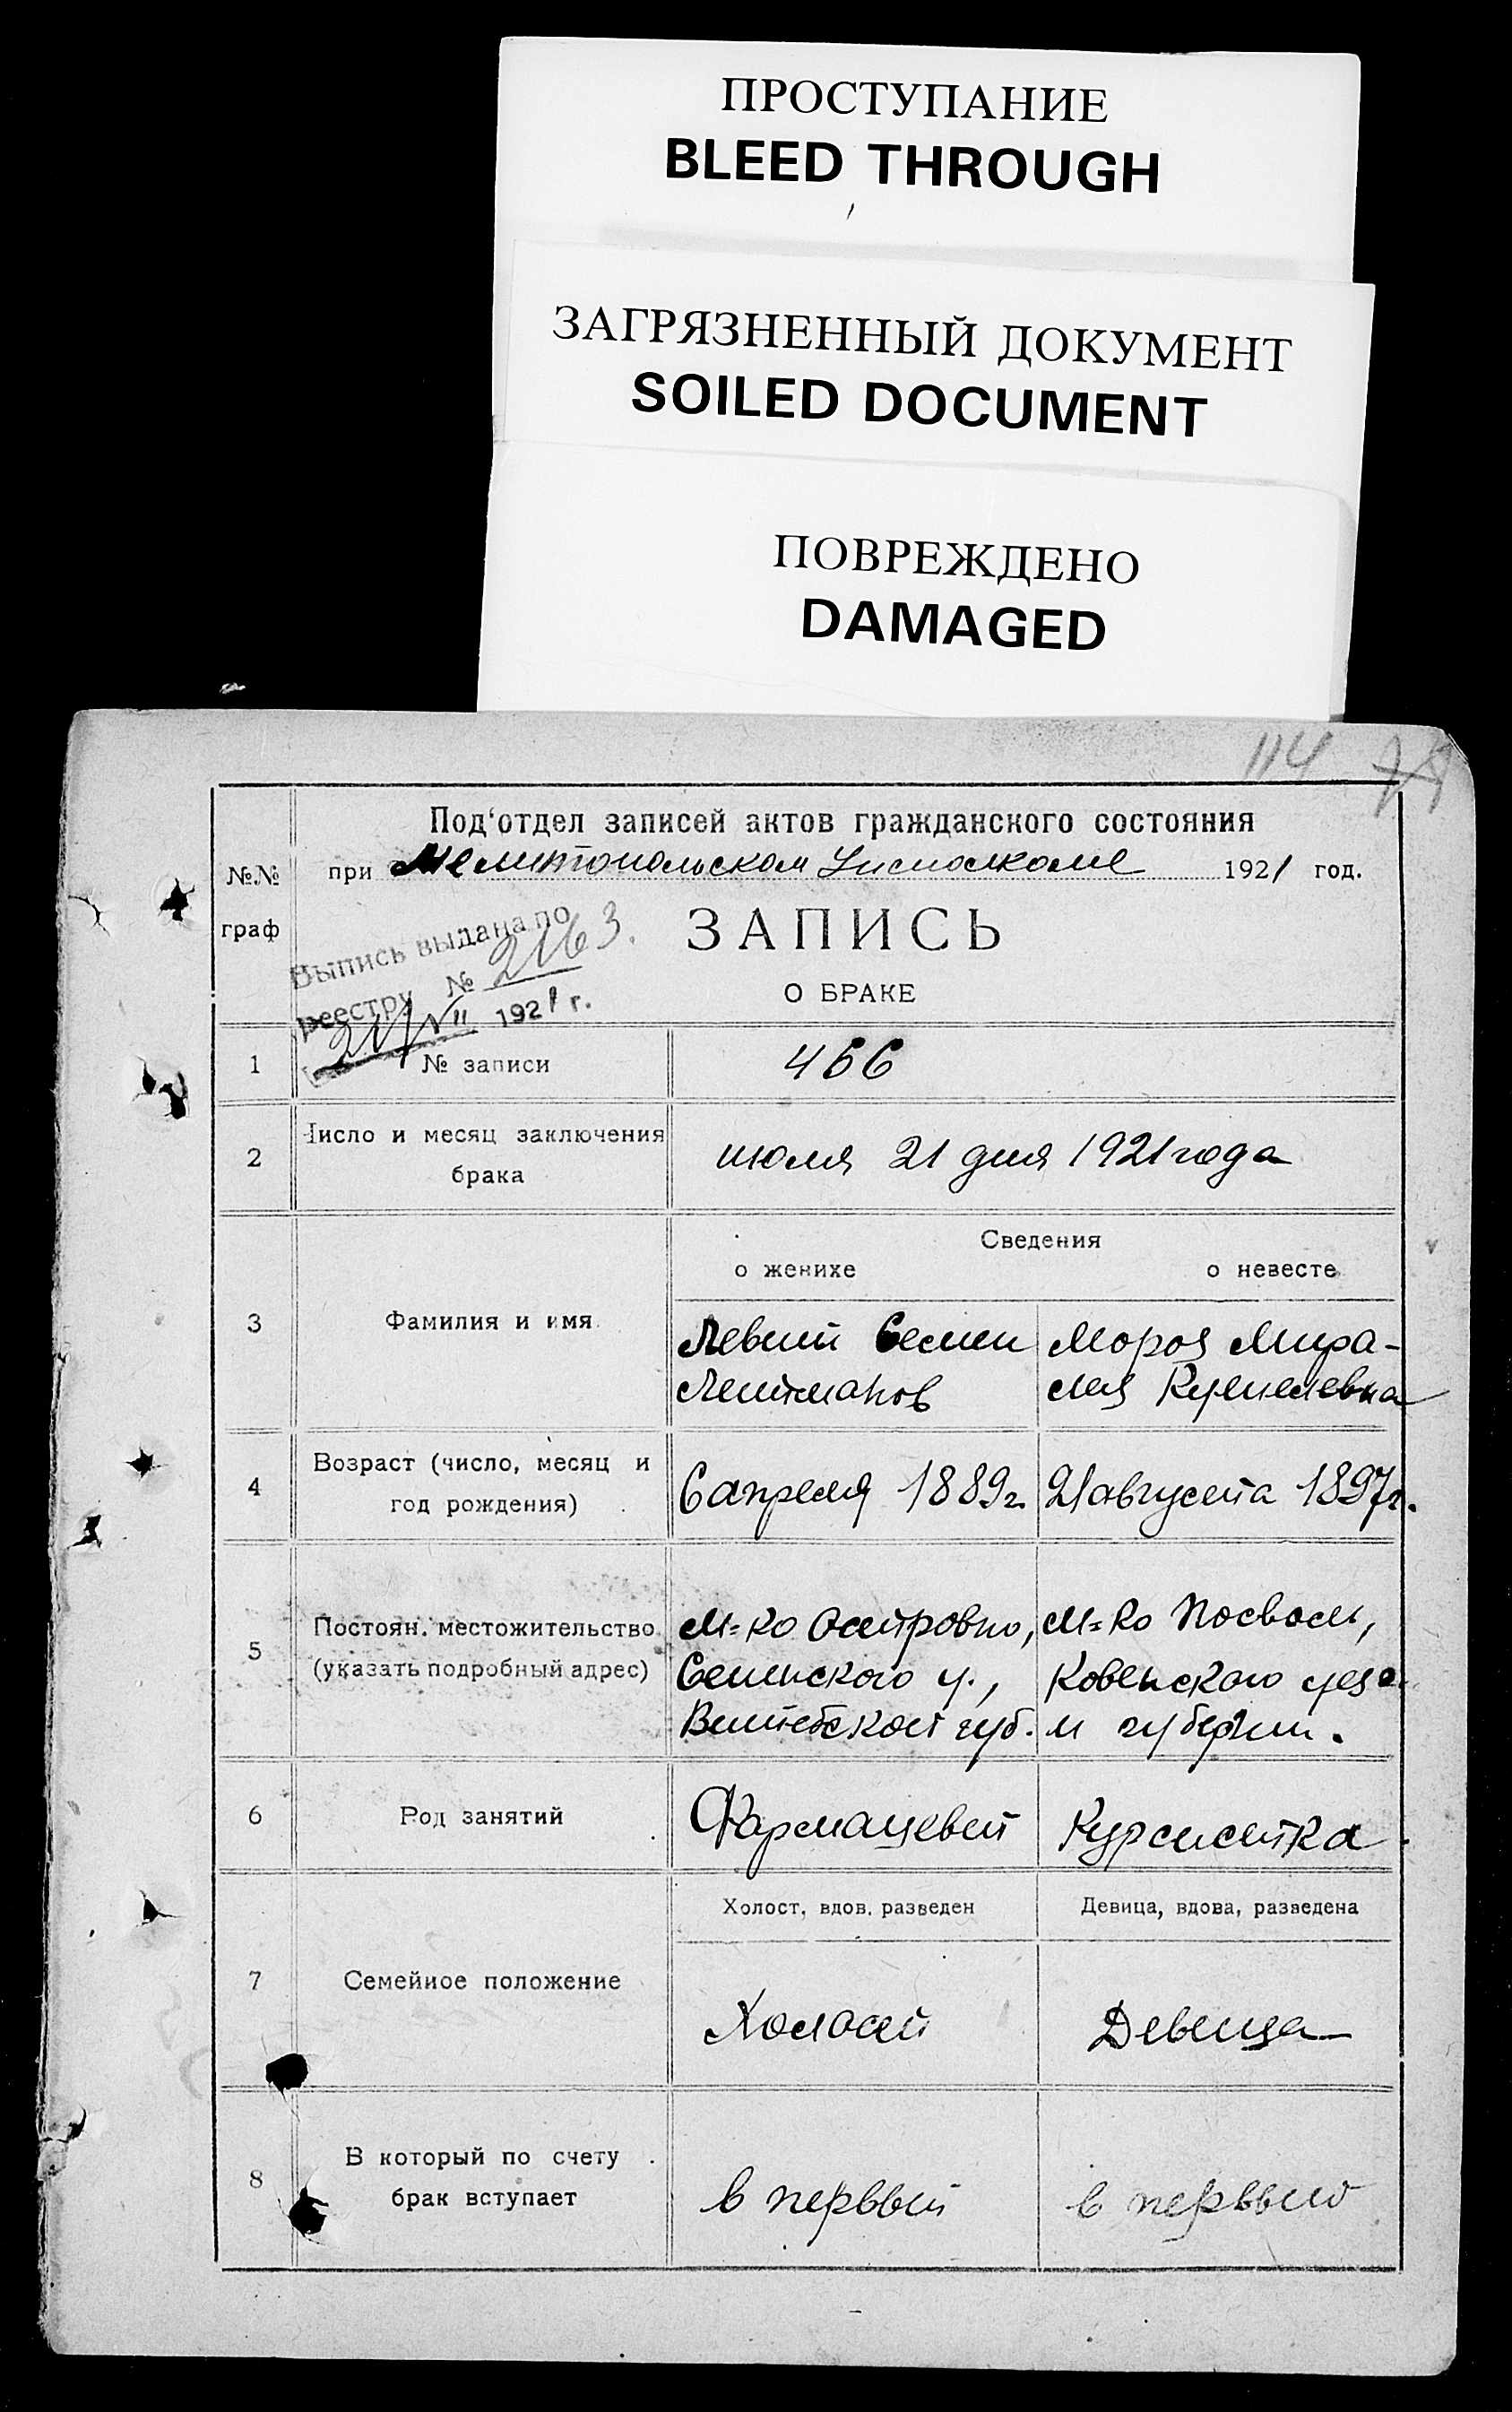 ПРОСТУПАНИЕ
BLEED THROUGH
ЗАГРЯЗНЕННЫЙ ДОКУМЕНТ
SOILED DOCUMENT
ПОВРЕЖДЕНО
DAMAGED
114
Под'отдел записей актов гражданского состояния
№№ граф
при Мелитопольском Исполкоме 1921 год.
Выпись выдана по
реестру № 2163.
21/VII 1921 г.
ЗАПИСЬ
О БРАКЕ
1 № записи 466
2 Число и месяц заключения
брака
июля 21 дня 1921 года
Сведения
о женихе о невесте
3 Фамилия и имя
Левин Семен Мороз Мира-
Лейманов лия
4 Возраст (число, месяц и
год рождения)
6 апреля 1889 г. 21 августа 1897 г.
5 Постоян. местожительство
(указать подробный адрес)
м=ко Островно, м=ко Посволь,
Сенинского у., Ковенского уезда
Витебской губ. и губернии.
6 Род занятий Фармацевт Курсистка
Холост, вдов, разведен Девица, вдова, разведена
7 Семейное положение Холост Девица
8 В который по счету
брак вступает
в первый в первый